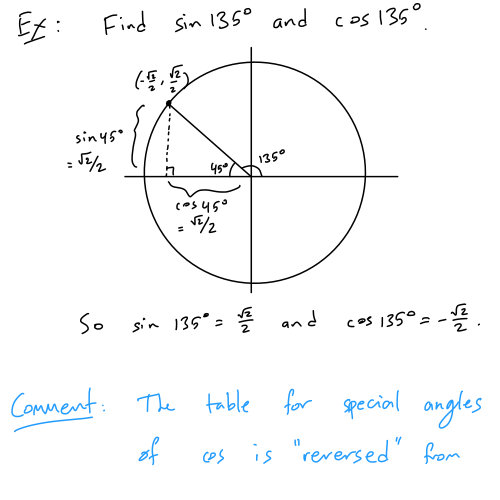 Ex: Find sin 135° and cos 135°.
(-√2/2, √2/2)
sin 45°
= √2/2
45°
135°
cos 45°
= √2/2
So sin 135° = √2/2 and cos 135° = -√2/2.
Comment: The table for special angles
of cos is "reversed" from